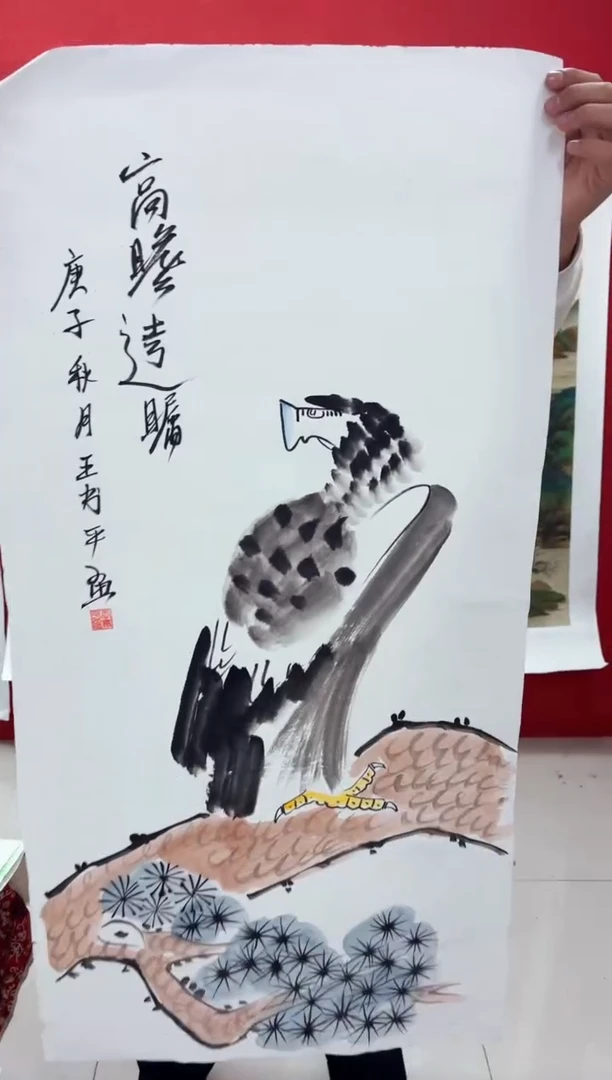 高瞻遠瞩
庚子秋月王平画